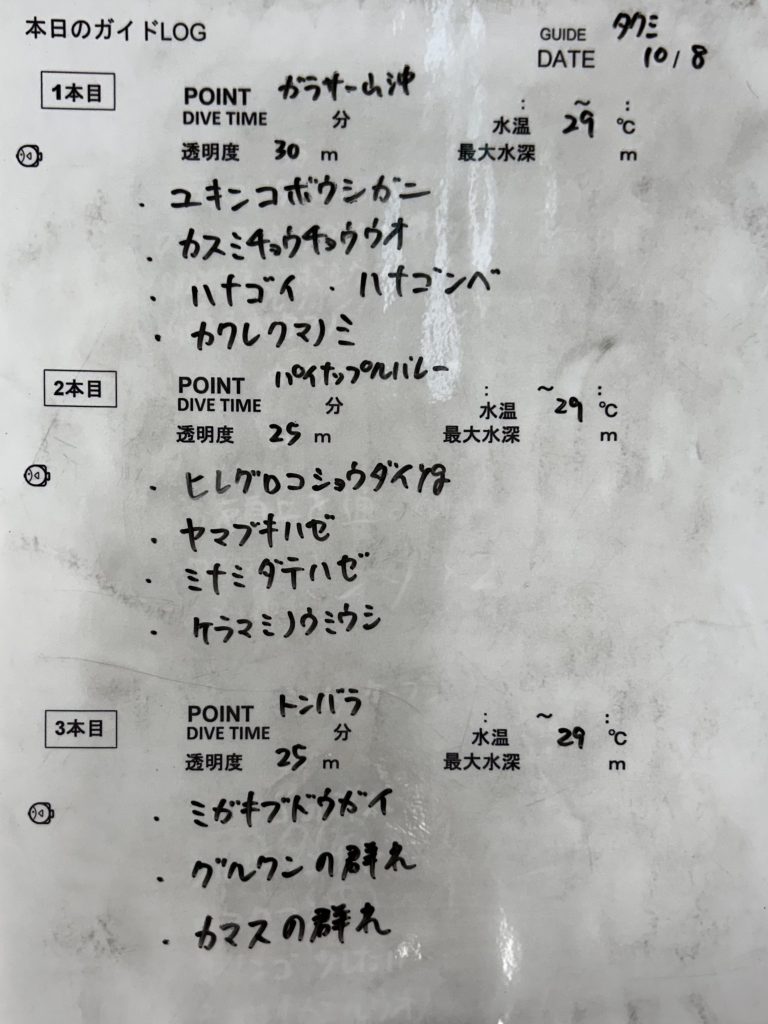 本日のガイドLOG
GUIDE タクミ
DATE 10/8
1本目
POINT ガラサー山沖
DIVE TIME 分 : ~ :
水温 29 ℃
透明度 30 m 最大水深 m
・ユキンコボウシガニ
・カスミチョウチョウウオ
・ハナゴイ ・ハナゴンベ
・カクレクマノミ
2本目
POINT パイナップルバレー
DIVE TIME 分 : ~ :
水温 29 ℃
透明度 25 m 最大水深 m
・ヒレグロコショウダイyg
・ヤマブキハゼ
・ミナミダテハゼ
・ケラマミノウミウシ
3本目
POINT トンバラ
DIVE TIME 分 : ~ :
水温 29 ℃
透明度 25 m 最大水深 m
・ミガキブドウガイ
・グルクンの群れ
・カマスの群れ